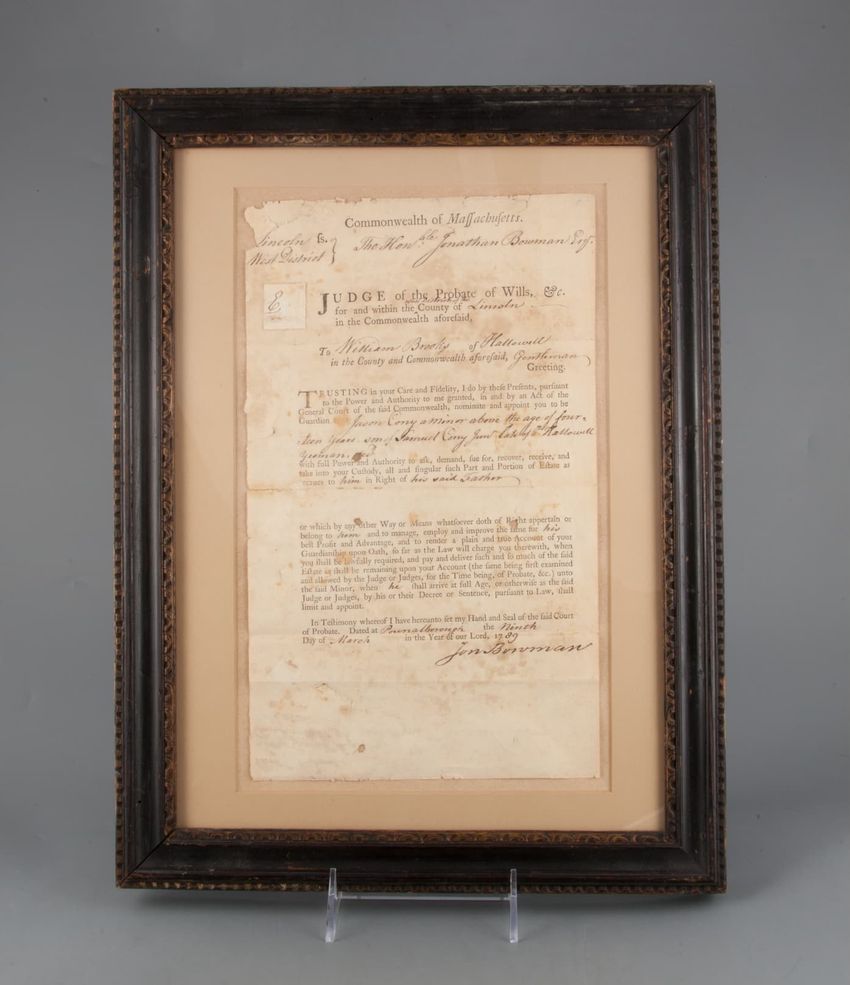 Commonwealth of Massachusetts.
Lincoln ss. }
West District
The Honble Jonathan Bowman Esqr.
E
JUDGE of the Probate of Wills, &c.
for and within the County of Lincoln
in the Commonwealth aforesaid,
To William Brooks of Hallowell
in the County and Commonwealth aforesaid, Gentleman
Greeting.
TRUSTING in your Care and Fidelity, I do by these Presents, pursuant
to the Power and Authority to me granted, in and by an Act of the
General Court of the said Commonwealth, nominate and appoint you to be
Guardian Jason Cony a minor above the age of four-
teen years son of Samuel Cony Junr late of sd Hallowell
yeoman,
with full Power and Authority to ask, demand, sue for, recover, receive, and
take into your Custody, all and singular such Part and Portion of Estate as
to him in Right of his said Father
or which by any other Way or Means whatsoever doth of Right appertain or
belong to him and to manage, employ and improve the same for his
best Profit and Advantage, and to render a plain and true Account of your
Guardianship upon Oath, so far as the Law will charge you therewith, when
you shall be lawfully required, and pay and deliver such and so much of the said
Estate as shall be remaining upon your Account (the same being first examined
and allowed by the Judge or Judges, for the Time being, of Probate, &c.) unto
the said Minor, when he shall arrive at full Age, or otherwise as the said
Judge or Judges, by his or their Decree or Sentence, pursuant to Law, shall
limit and appoint.
In Testimony whereof I have hereunto set my Hand and Seal of the said Court
of Probate. Dated at Pownalborough the Ninth
Day of March in the Year of our Lord, 1789
Jon Bowman